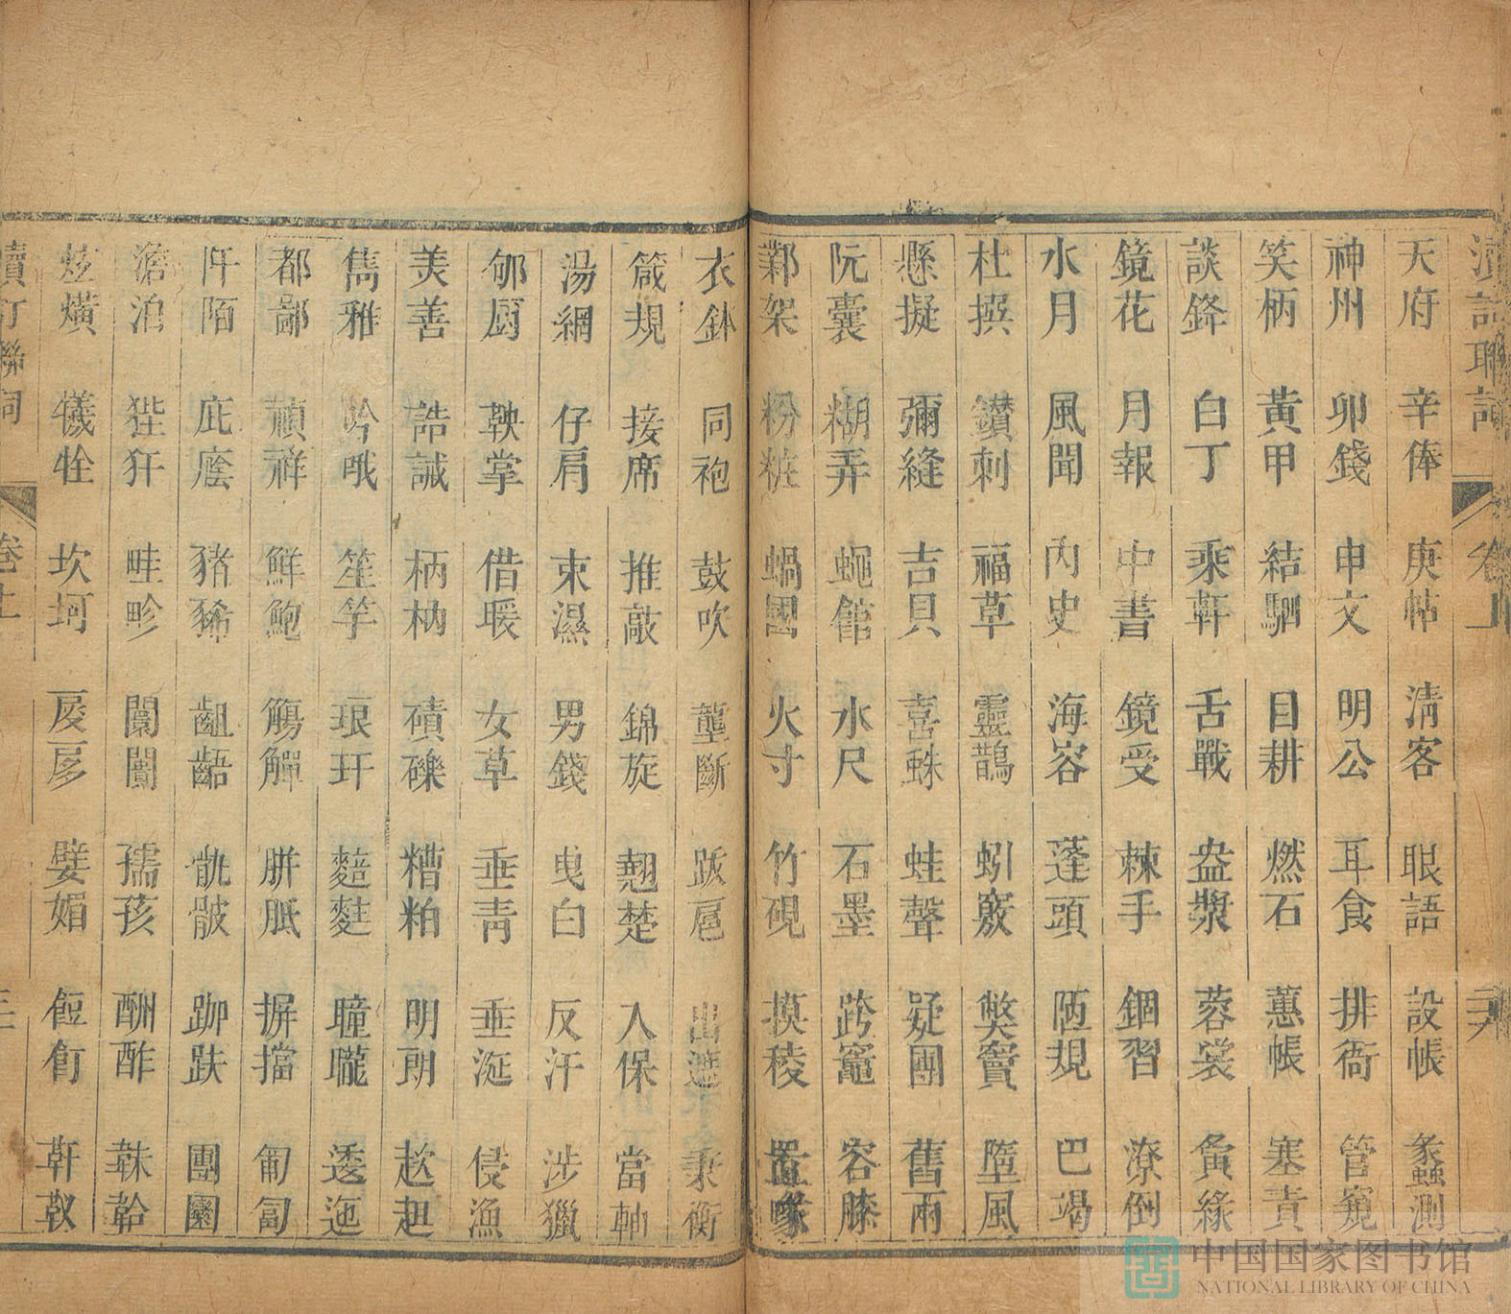 天府 辛俸 庚帖 淸客 眼語 設帳 蠡測
神州 卯錢 申文 明公 耳食 排衙 管窺
笑柄 黃甲 結駟 目耕 燃石 蕙帳 塞責
談鋒 白丁 乘軒 舌戰 盎漿 蓉裳 夤緣
鏡花 月報 中書 鏡受 棘手 錮習 潦倒
水月 風聞 內史 海容 蓬頭 陋規 巴竭
杜撰 鑽刺 福草 靈鵲 蚓竅 獘竇 墮風
懸擬 彌縫 吉貝 喜蛛 蛙聲 疑團 舊雨
阮囊 糊弄 蠅館 水尺 石墨 跨竈 容膝
鄴架 粉粧 蝸國 火寸 竹硯 摸稜 置喙
衣鉢 同袍 鼓吹 壟斷 跋扈 出遊 秉衡
箴規 接席 推敲 錦旋 翹楚 入保 當軸
湯網 仔肩 束濕 男錢 曳白 反汗 涉獵
郇厨 鞅掌 借暖 女草 垂靑 垂涎 侵漁
美善 誥誡 柄枘 磧礫 糟粕 明朗 趑趄
雋雅 吟哦 笙竽 琅玕 䴺麩 曈曨 逶迤
都鄙 禎祥 鮮鮑 觴觶 胼胝 摒擋 匍匐
阡陌 庇廕 豬豨 齟齬 骪骳 跏趺 團圞
澹泊 狴犴 畦畛 闤闠 孺孩 酬酢 韎韐
炫熿 犧牲 坎坷 扊扅 嬖媚 餖飣 靬靫
卷上
中国国家图书馆
NATIONAL LIBRARY OF CHINA